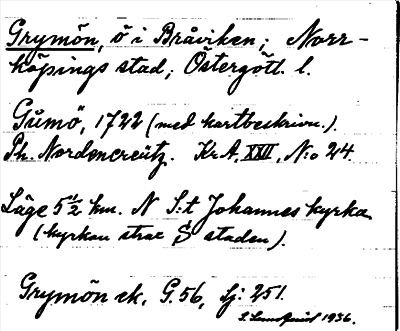 Grymön, ö i Bråviken; Norr-
köpings stad; Östergötl. l.
Gůmö, 1722 (med kartbeskrivn.).
Ph. Nordencreütz. Kr.A. XXII, N:o 24.
Läge 5 1/2 km. N S:t Johannes kyrka
(kyrkan strax S staden).
Grymön ek. G. 56, Sj: 251.
1936.